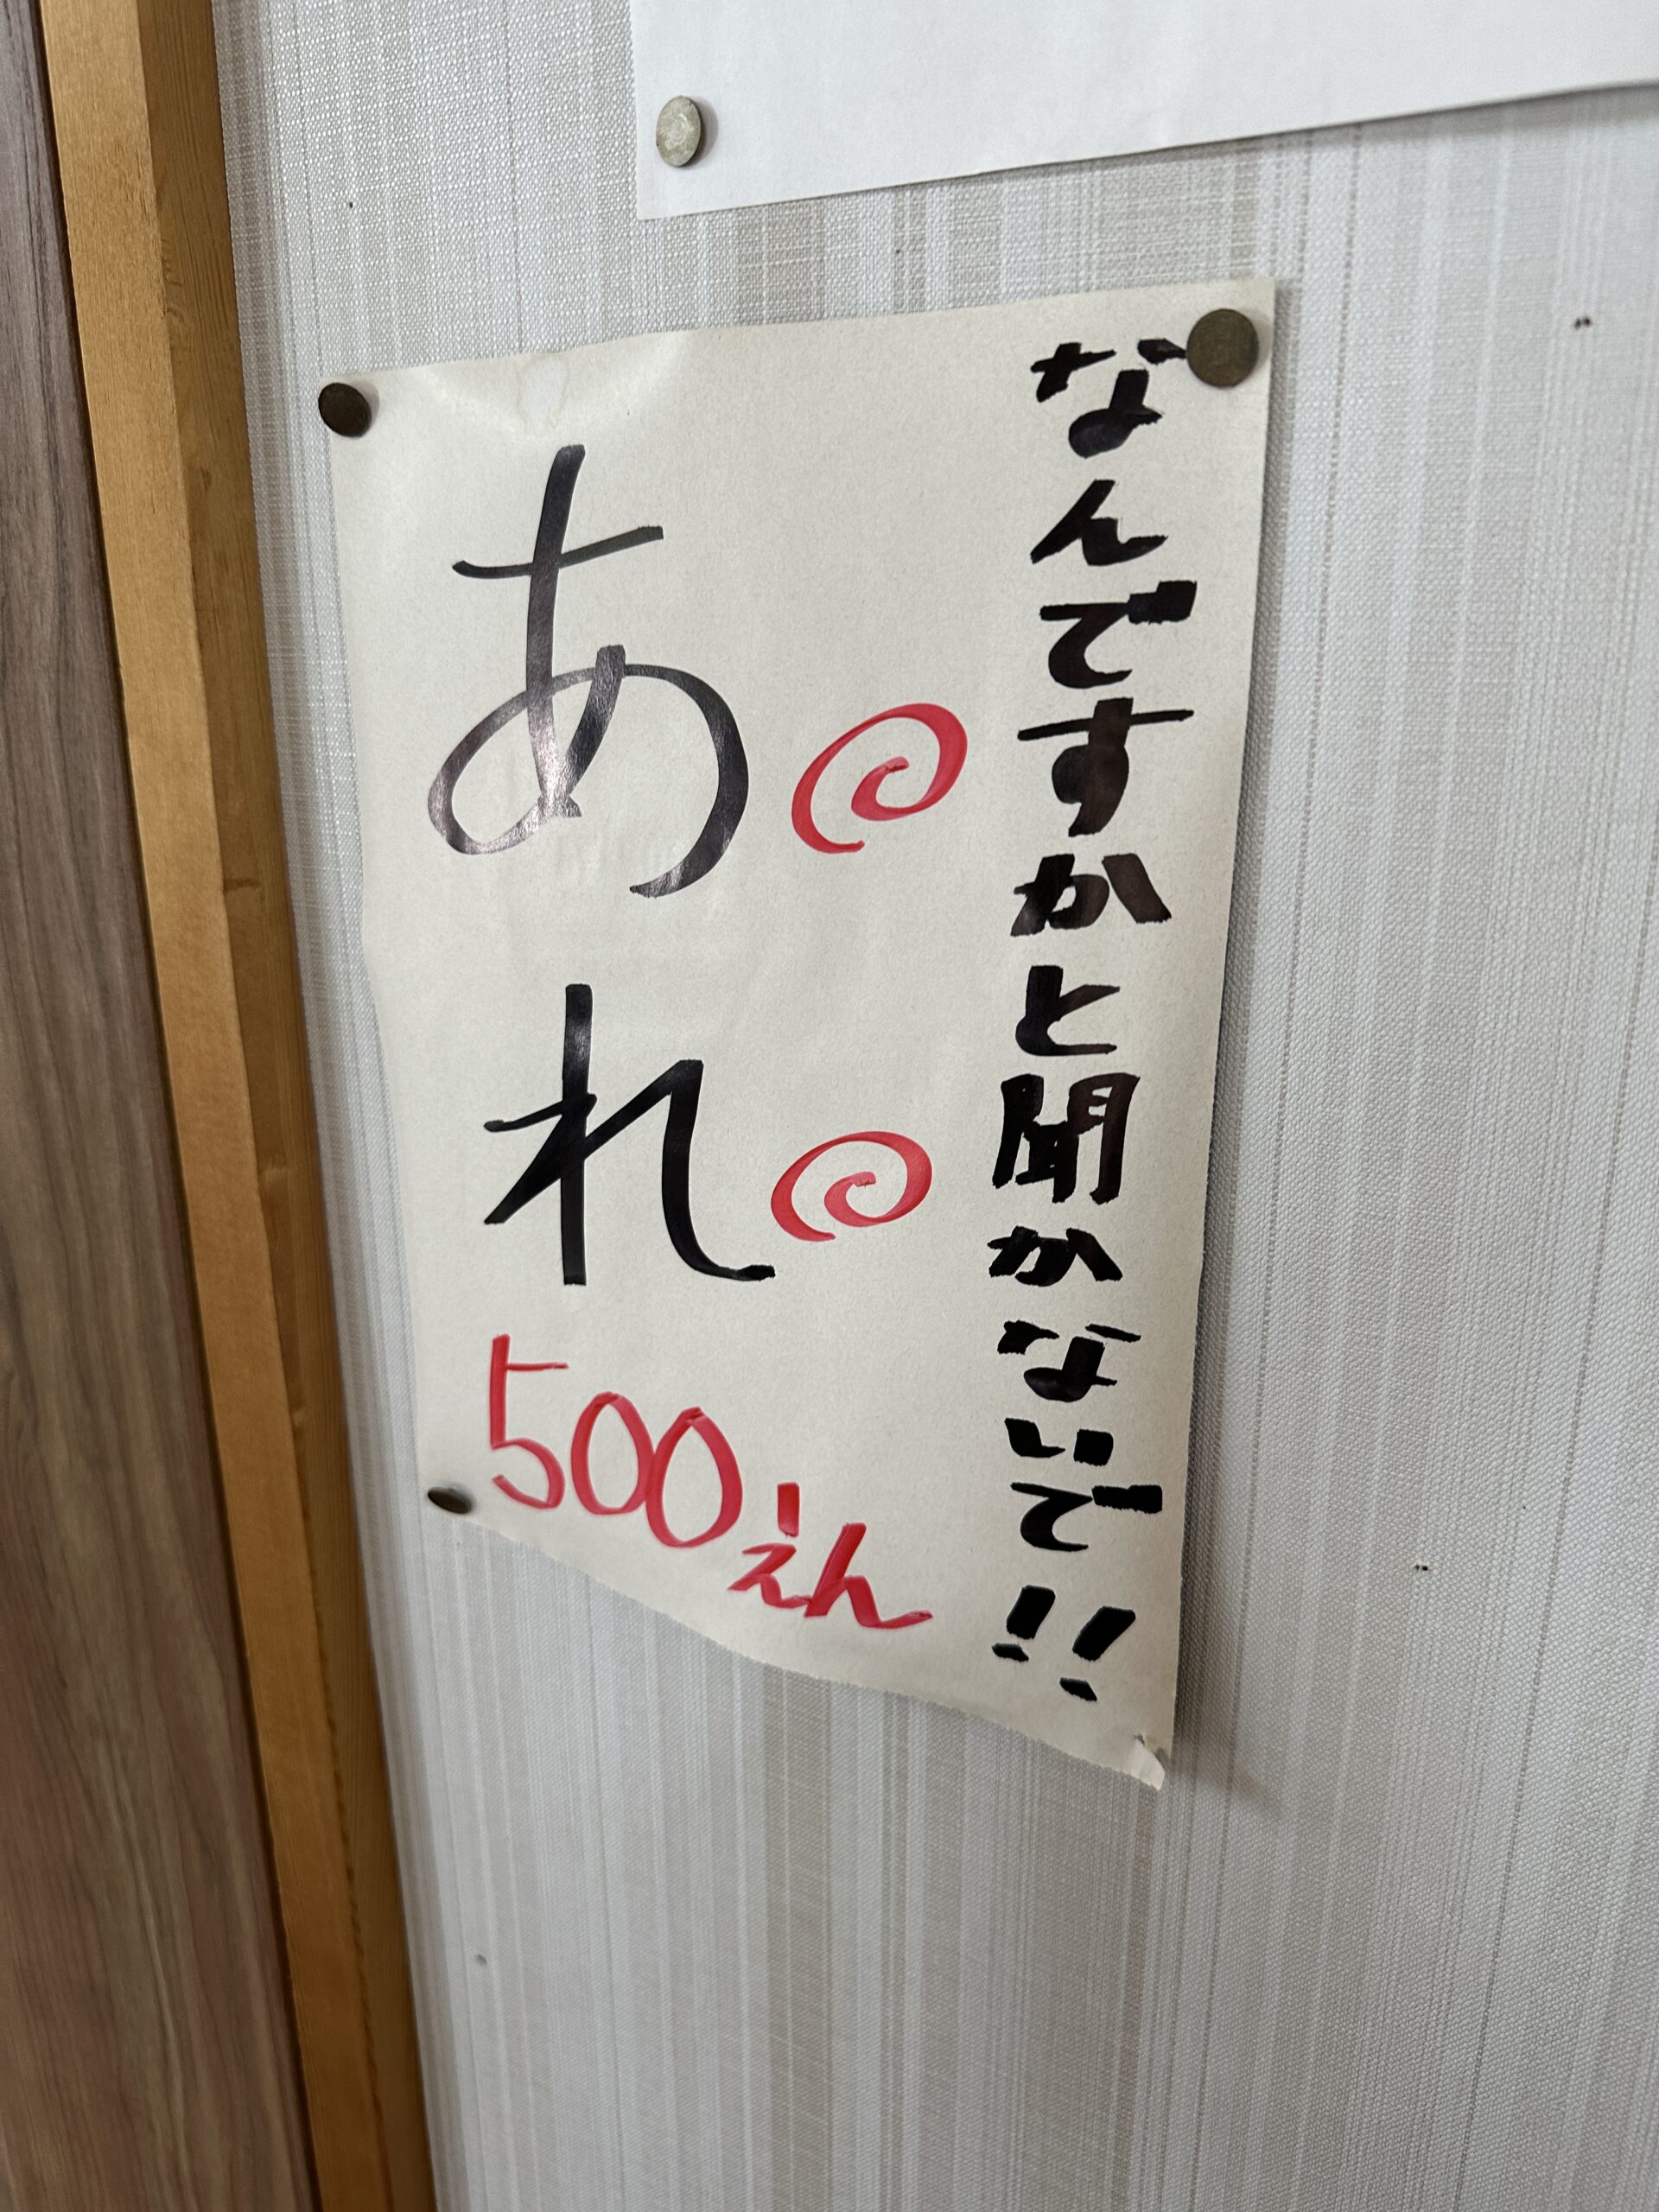 なんですかと聞かないで!!
あれ
500えん